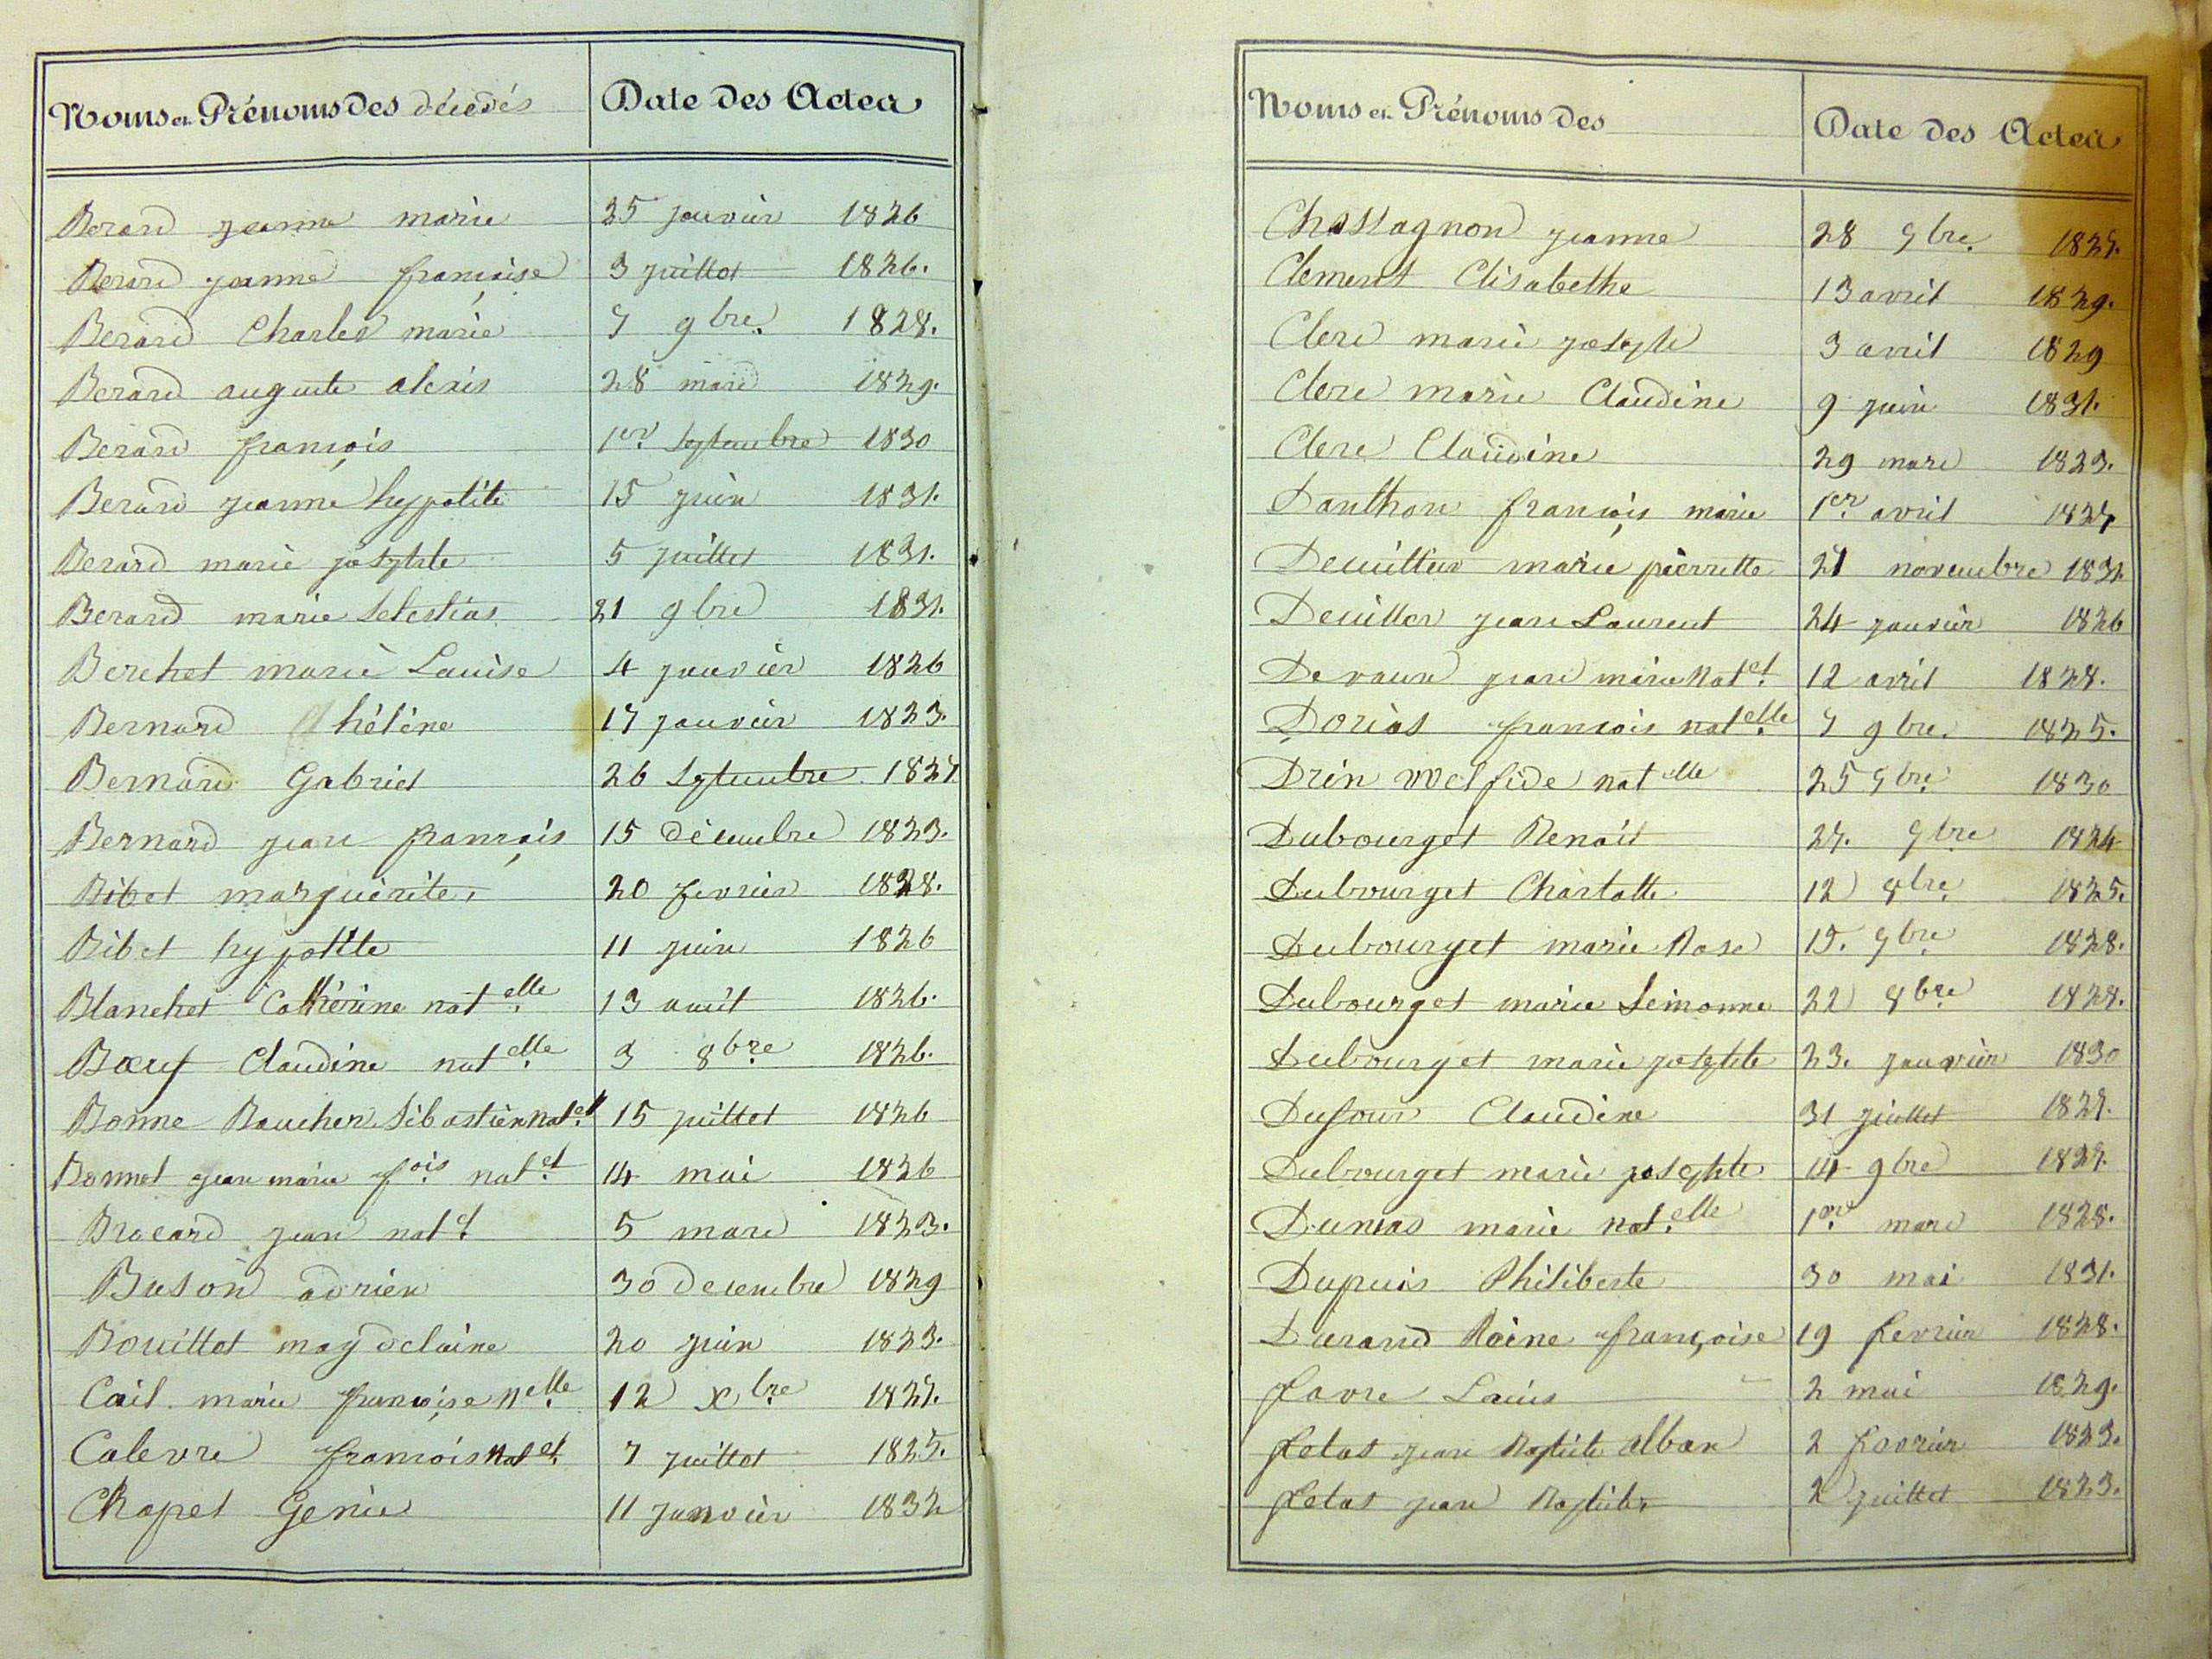 Noms et Prénoms des décédés Date des Actes
Berard jeanne marie 25 janvier 1826
Berard jeanne françoise 3 juillet 1826.
Berard Charles marie 7 9bre. 1828.
Berard auguste alexis 28 mars 1829.
Berard françois 1er. Septembre 1830
Berard jeanne hypolite 15 juin 1831.
Berard marie josephte 5 juillet 1831.
Berard marie Selestias 21 9bre 1831.
Berchet marie Louise 4 janvier 1826
Bernard hélène 17 janvier 1823.
Bernard Gabriel 26 Septembre 1827.
Bernard jean françois 15 décembre 1823.
Bibet marguerite 20 fevrier 1828.
Bibet hypolite 11 juin 1826
Blanchet Catherine natelle 13 août 1826.
Bœuf Claudine natelle 3 8bre 1826.
Bonne Boucher Sébastien natel 15 juillet 1826
Bonnet jean marie fois natel 14 mai 1826
Brocard jean natel 5 mars 1823.
Buson adrien 30 decembre 1829
Bouillet magdelaine 20 juin 1823.
Cail marie françoise nelle 12 xbre 1827.
Calevre françois natel 7 juillet 1825.
Chapel Genie 11 janvier 1832
Noms et Prénoms des Date des Actes
Chassagnon jeanne 28 9bre. 1827.
Clement Elisabethe 13 avril 1829.
Clerc marie josephte 3 avril 1829
Clerc marie Claudine 9 juin 1831.
Clerc Claudine 29 mars 1823.
Danthon françois marie 1er avril 1827
marie pierrette 21 novembre 1831.
Deuiller jean Laurent 24 janvier 1826
Devaux jean marie natel 12 avril 1828.
Dorias françois natelle 7 9bre. 1825.
Drin natelle 25 9bre 1830
Dubourget Benoit 27. 9bre 1824
Dubourget Charlotte 12 8bre 1825.
Dubourget marie Rose 15. 9bre 1828.
Dubourget marie Simonne 22 8bre 1828.
Dubourget marie josephte 23. janvier 1830
Dufour Claudine 31 juillet 1827.
Dubourget marie josephte 14 9bre 1827.
Dumas marie natelle 1er mars 1828.
Dupuis Philiberte 30 mai 1831.
Durand Roine françoise 19 fevrier 1828.
favre Louis 2 mai 1829.
fetas jean Baptiste alban 2 fevrier 1823.
fetas jean Baptiste 2 juillet 1823.